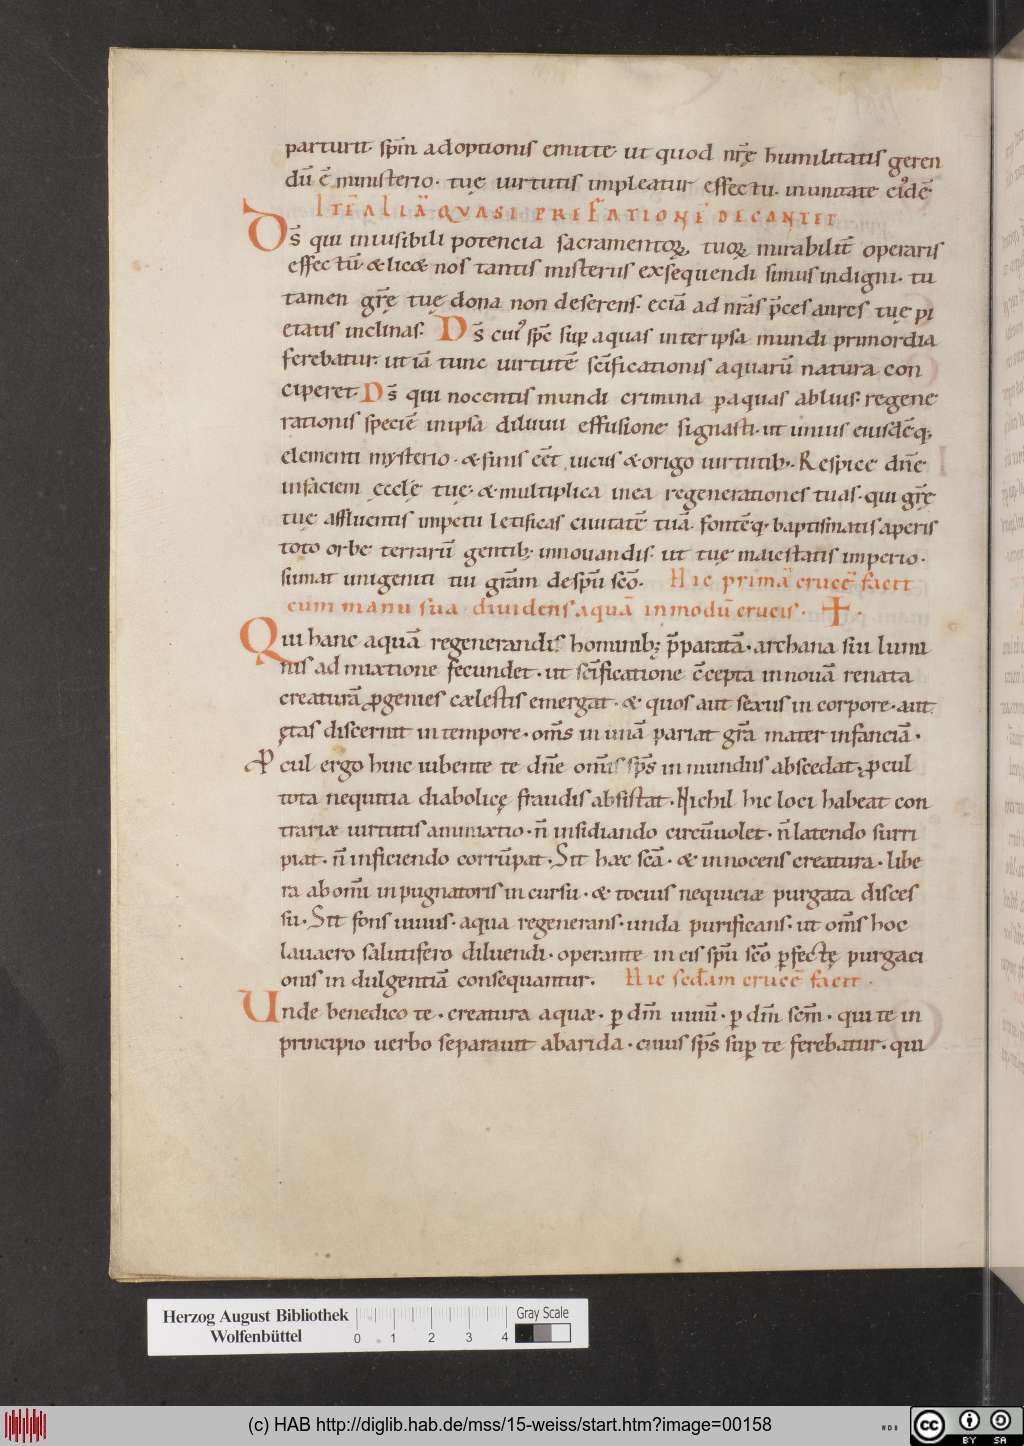 parturit· sp̄m adoptionis emitte· ut quod nr̄ę humilitatis geren
dū ē ministerio· tuę uirtutis impleatur effectu· in unitate eiꝰdē
ITĒ ALIĀ QVASI PREFATIONĒ DECANTET
Ds̄ qui inuisibili potencia sacramentoꝝ, tuoꝝ mirabilit̄ operaris
effectū· & lic& nos tantis misteriis exsequendi simus indigni· tu
tamen gr̄ę tuę dona non deserens· eciā ad nr̄as p̄ces aures tuę pi
etatis inclinas· Ds̄ cuiꝰ sp̄c suꝑ aquas inter ipsa mundi primordia
ferebatur· ut iā tunc uirtutē sc̄ificationis aquarū natura con
ciperet· Ds̄ qui nocentis mundi crimina ꝑ aquas abluis· regene
rationis speciē in ipsa diluuii effusione signasti· ut unius eiusdēq;
elementi mysterio· & finis eēt uicus & origo uirtutib;· Respice dn̄e
in faciem ęcclę tuę· & multiplica in ea regenerationes tuas· qui gr̄ę
tuę affluentis impetu letificas ciuitatē tuā· fontēq; baptismatis aperis
toto orbe terrarū gentib; innouandis· ut tuę maiestatis imperio·
sumat unigeniti tui grām de spū scō· Hic primā crucē facit
cum manu sua diuidens aquā in modū crucis· ✝·
Qui hanc aquā regenerandis hominib; p̄paratā· archana sui lumi
nis ad mixtione fecundet· ut sc̄ificatione c̄cepta in nouā renata
creaturā ꝓgenies cælestis emergat· & quos aut sexus in corpore· aut
ętas discernit in tempore· om̄s in unā pariat grā mater infanciā·
Ꝓcul ergo hinc iubente te dn̄e om̄is sp̄s inmundus abscedat; ꝓcul
tota nequitia diabolicę fraudis absistat· Nichil hic loci habeat con
trariæ uirtutis ammixtio· n̄ insidiando circūuolet· n̄ latendo surri
piat· n̄ inficiendo corrūpat· Sit hæc scā· & innocens creatura· libe
ra ab omī inpugnatoris incursu· & tocius nequiciæ purgata disces
su· Sit fons uiuus· aqua regenerans· unda purificans· ut om̄s hoc
lauacro salutifero diluendi· operante in eis spū scō ꝑfectę purgaci
onis indulgentiā consequantur· Hic scd̄am crucē facit·
Unde benedico te· creatura aquæ· ꝑ dm̄ uiuū· ꝑ dm̄ scm̄· qui te in
principio uerbo separauit ab arida· cuius sp̄s suꝑ te ferebatur· qui
Herzog August Bibliothek
Wolfenbüttel
0 1 2 3 4
Gray Scale
(c) HAB http://diglib.hab.de/mss/15-weiss/start.htm?image=00158
WDB
cc BY SA